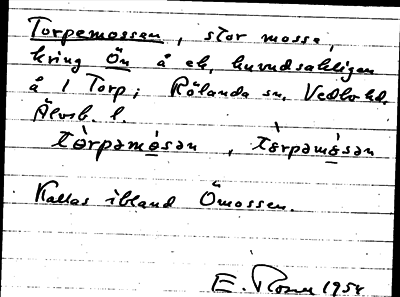 Torpemossen, stor mosse,
kring Ön å ek, huvudsakligen
å 1 Torp; Rölanda sn, Vedbo hd.
Älvsb. l.
tɵ̀rpəmɵsən, tɵ̀rpəmɵ́sən
Kallas ibland Ömossen.
E. 1954